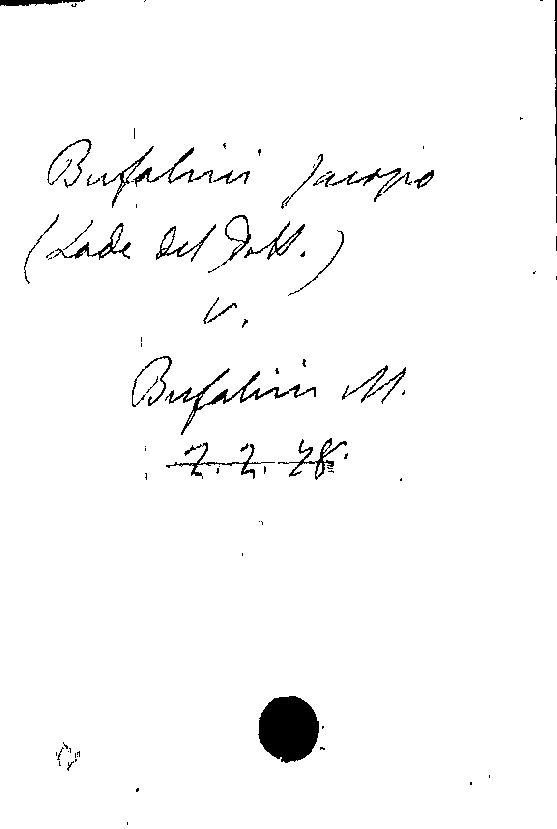 Bufalini Jacopo
(Lode del Dott.)
v.
Bufalini M.
2. 2. 48.